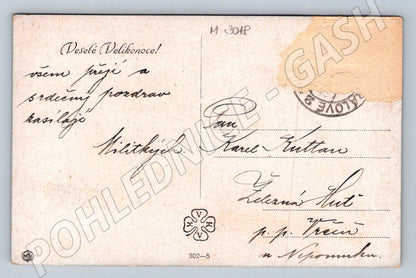 Veselé Velikonoce!
všem přeji a
srdečný pozdrav
zasílaje
Militkých
M 3018
ÁLOVÉ 2
Pan
Karel Kuttan
Železná Huť
p. p. Vrčeň
u Nepomuku.
V
K K
V
302–5
POHLEDNICE - GASH